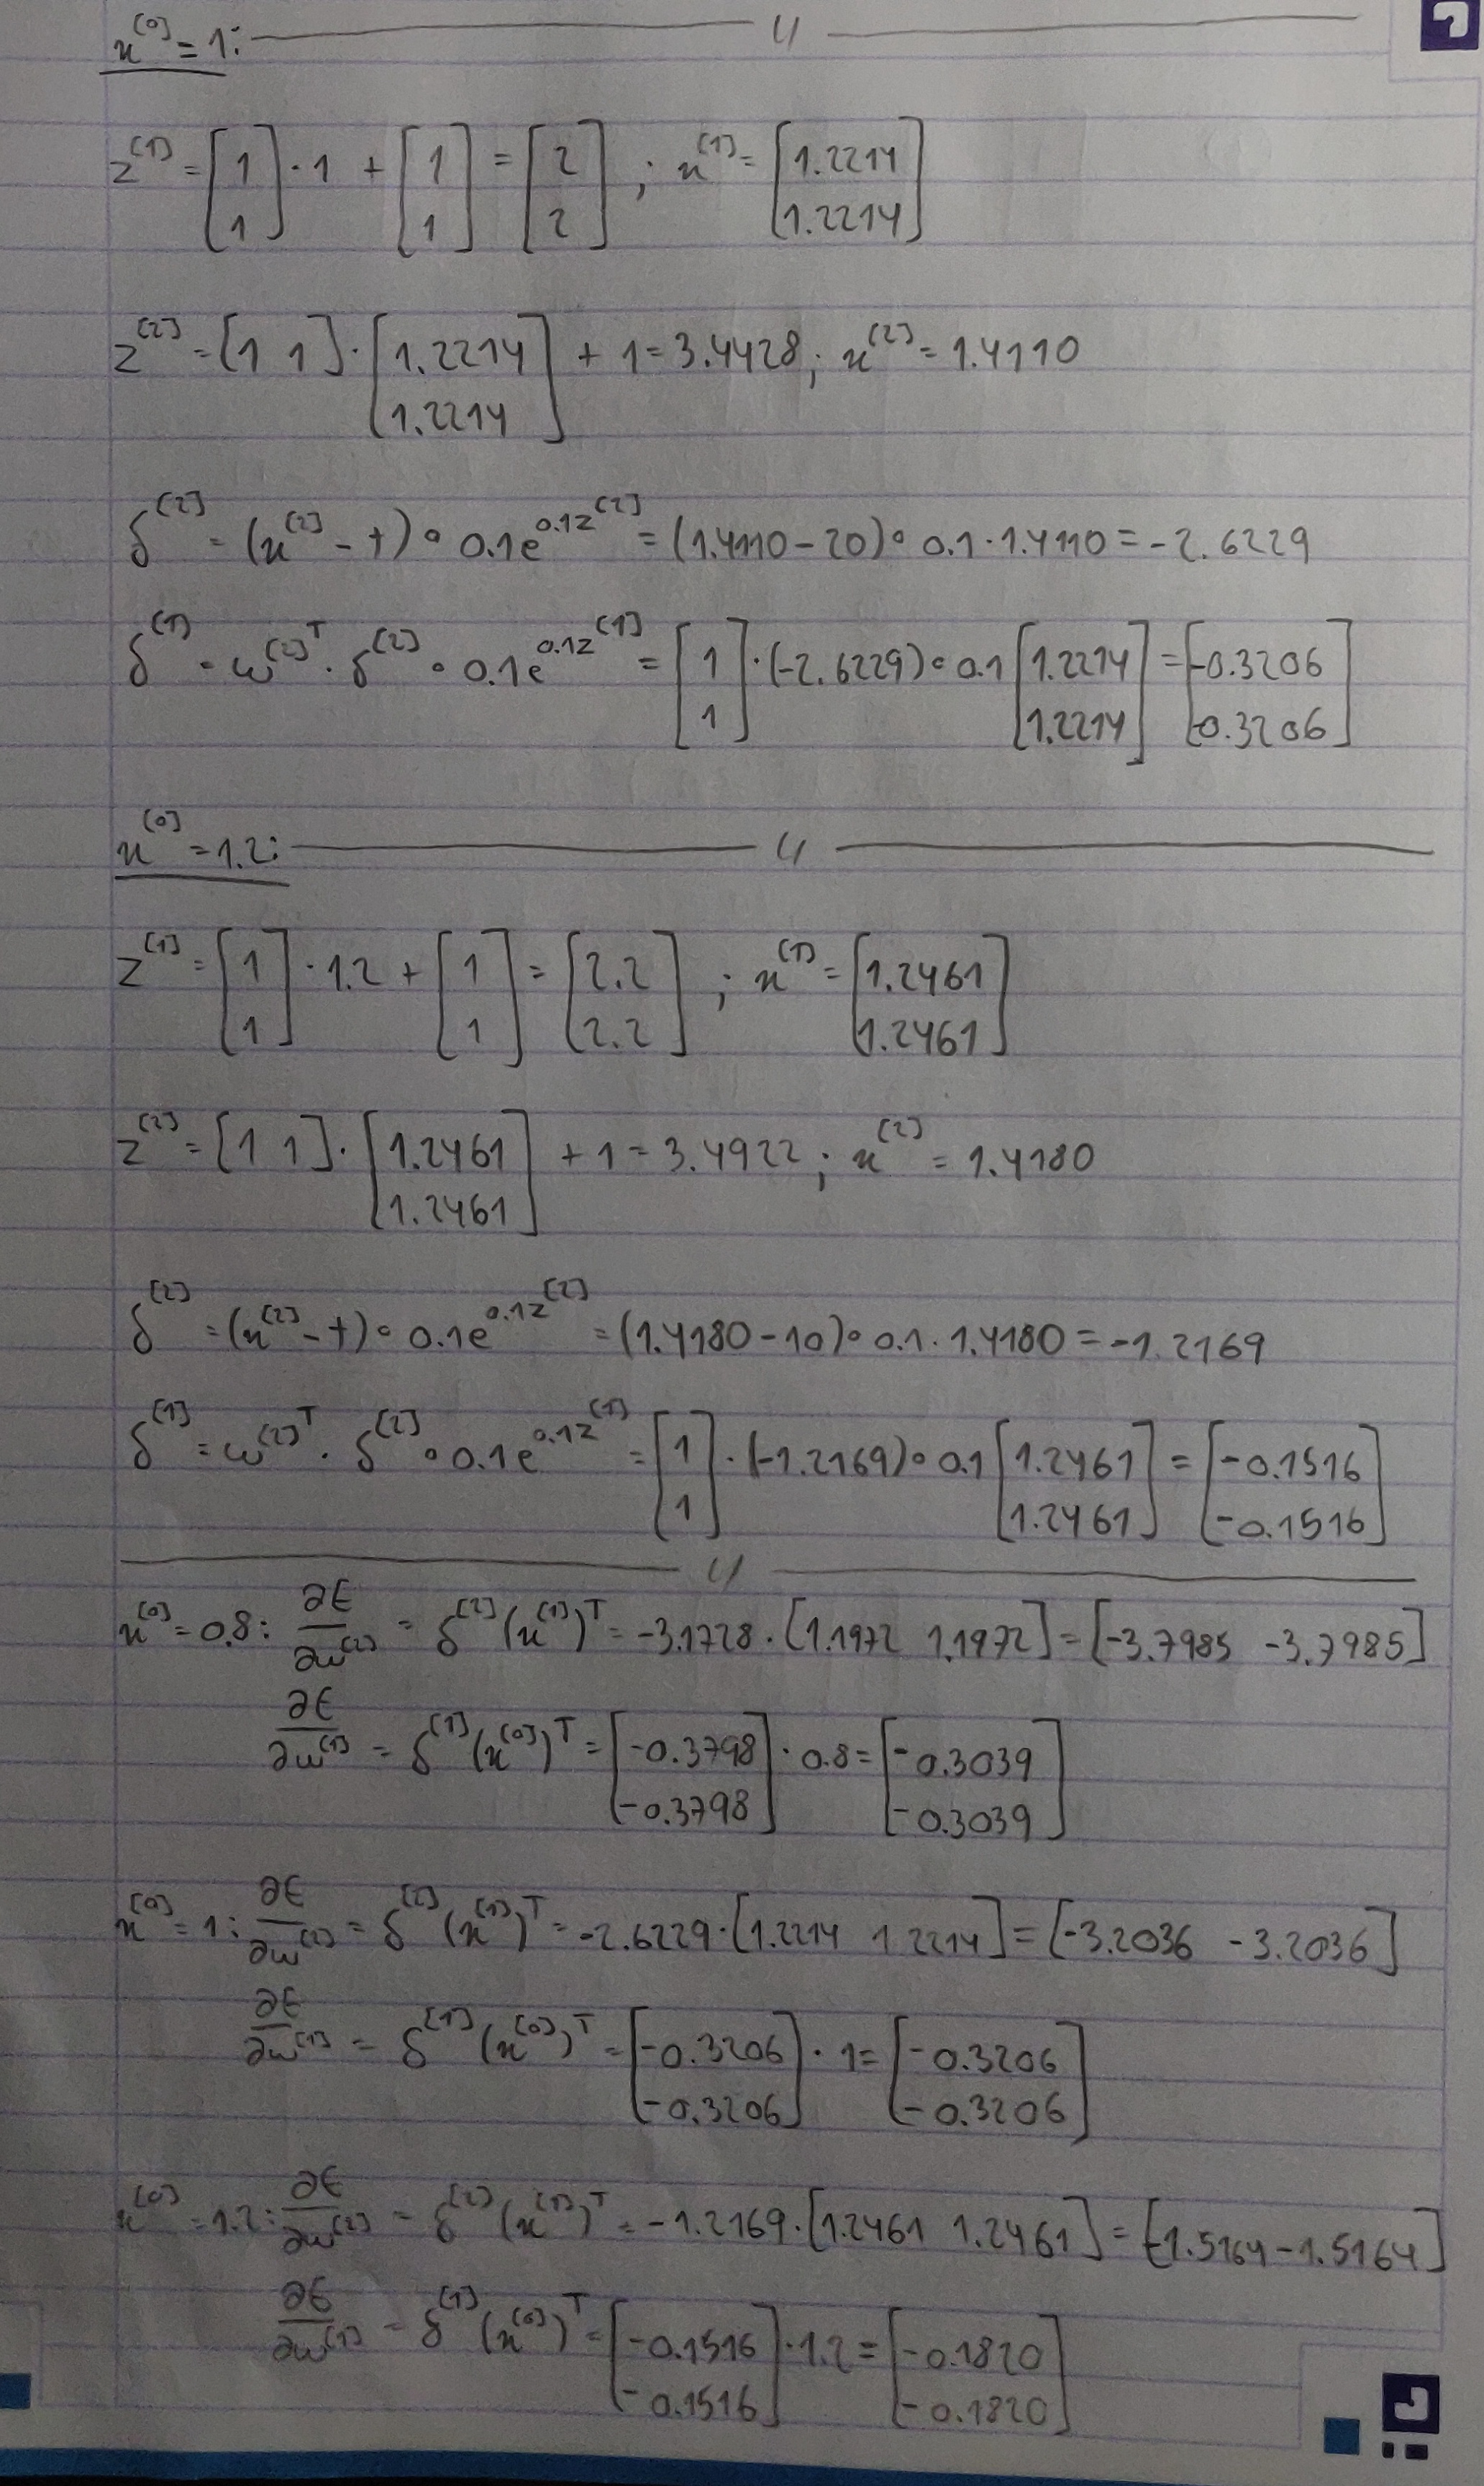 x^[0] = 1:
z^[1] = [1; 1] · 1 + [1; 1] = [2; 2] ; x^[1] = [1.2214; 1.2214]
z^[2] = [1 1] · [1.2214; 1.2214] + 1 = 3.4428 ; x^[2] = 1.4110
δ^[2] = (x^[2] - t) ∘ 0.1e^0.1z^[2] = (1.4110 - 20) ∘ 0.1 · 1.4110 = -2.6229
δ^[1] = w^[2]^T · δ^[2] ∘ 0.1e^0.1z^[1] = [1; 1] · (-2.6229) ∘ 0.1 [1.2214; 1.2214] = [-0.3206; -0.3206]
x^[0] = 1.2:
z^[1] = [1; 1] · 1.2 + [1; 1] = [2.2; 2.2] ; x^[1] = [1.2461; 1.2461]
z^[2] = [1 1] · [1.2461; 1.2461] + 1 = 3.4922 ; x^[2] = 1.4180
δ^[2] = (x^[2] - t) ∘ 0.1e^0.1z^[2] = (1.4180 - 10) ∘ 0.1 · 1.4180 = -1.2169
δ^[1] = w^[2]^T · δ^[2] ∘ 0.1e^0.1z^[1] = [1; 1] · (-1.2169) ∘ 0.1 [1.2461; 1.2461] = [-0.1516; -0.1516]
x^[0] = 0.8: ∂E/∂w^[2] = δ^[2] (x^[1])^T = -3.1728 · [1.1972 1.1972] = [-3.7985 -3.7985]
∂E/∂w^[1] = δ^[1] (x^[0])^T = [-0.3798; -0.3798] · 0.8 = [-0.3039; -0.3039]
x^[0] = 1: ∂E/∂w^[2] = δ^[2] (x^[1])^T = -2.6229 · [1.2214 1.2214] = [-3.2036 -3.2036]
∂E/∂w^[1] = δ^[1] (x^[0])^T = [-0.3206; -0.3206] · 1 = [-0.3206; -0.3206]
x^[0] = 1.2: ∂E/∂w^[2] = δ^[2] (x^[1])^T = -1.2169 · [1.2461 1.2461] = [-1.5164 -1.5164]
∂E/∂w^[1] = δ^[1] (x^[0])^T = [-0.1516; -0.1516] · 1.2 = [-0.1820; -0.1820]